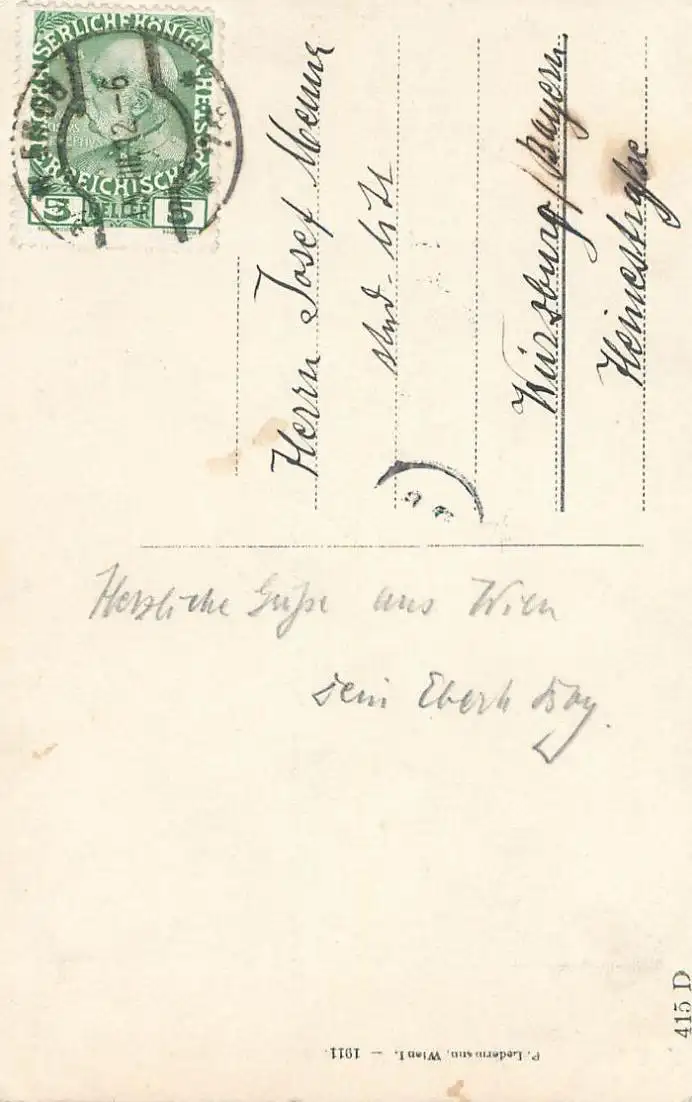 KAISERLICHE KÖNIGLICHE
ÖSTERREICHISCHE
5 HELLER 5
12-6
Herrn Josef Menne
stud.
Würzburg/Bayern
Heinestraße
Herzliche Grüße aus Wien
dein Eberh
P. Ledermann, Wien I. – 1911.
415 D